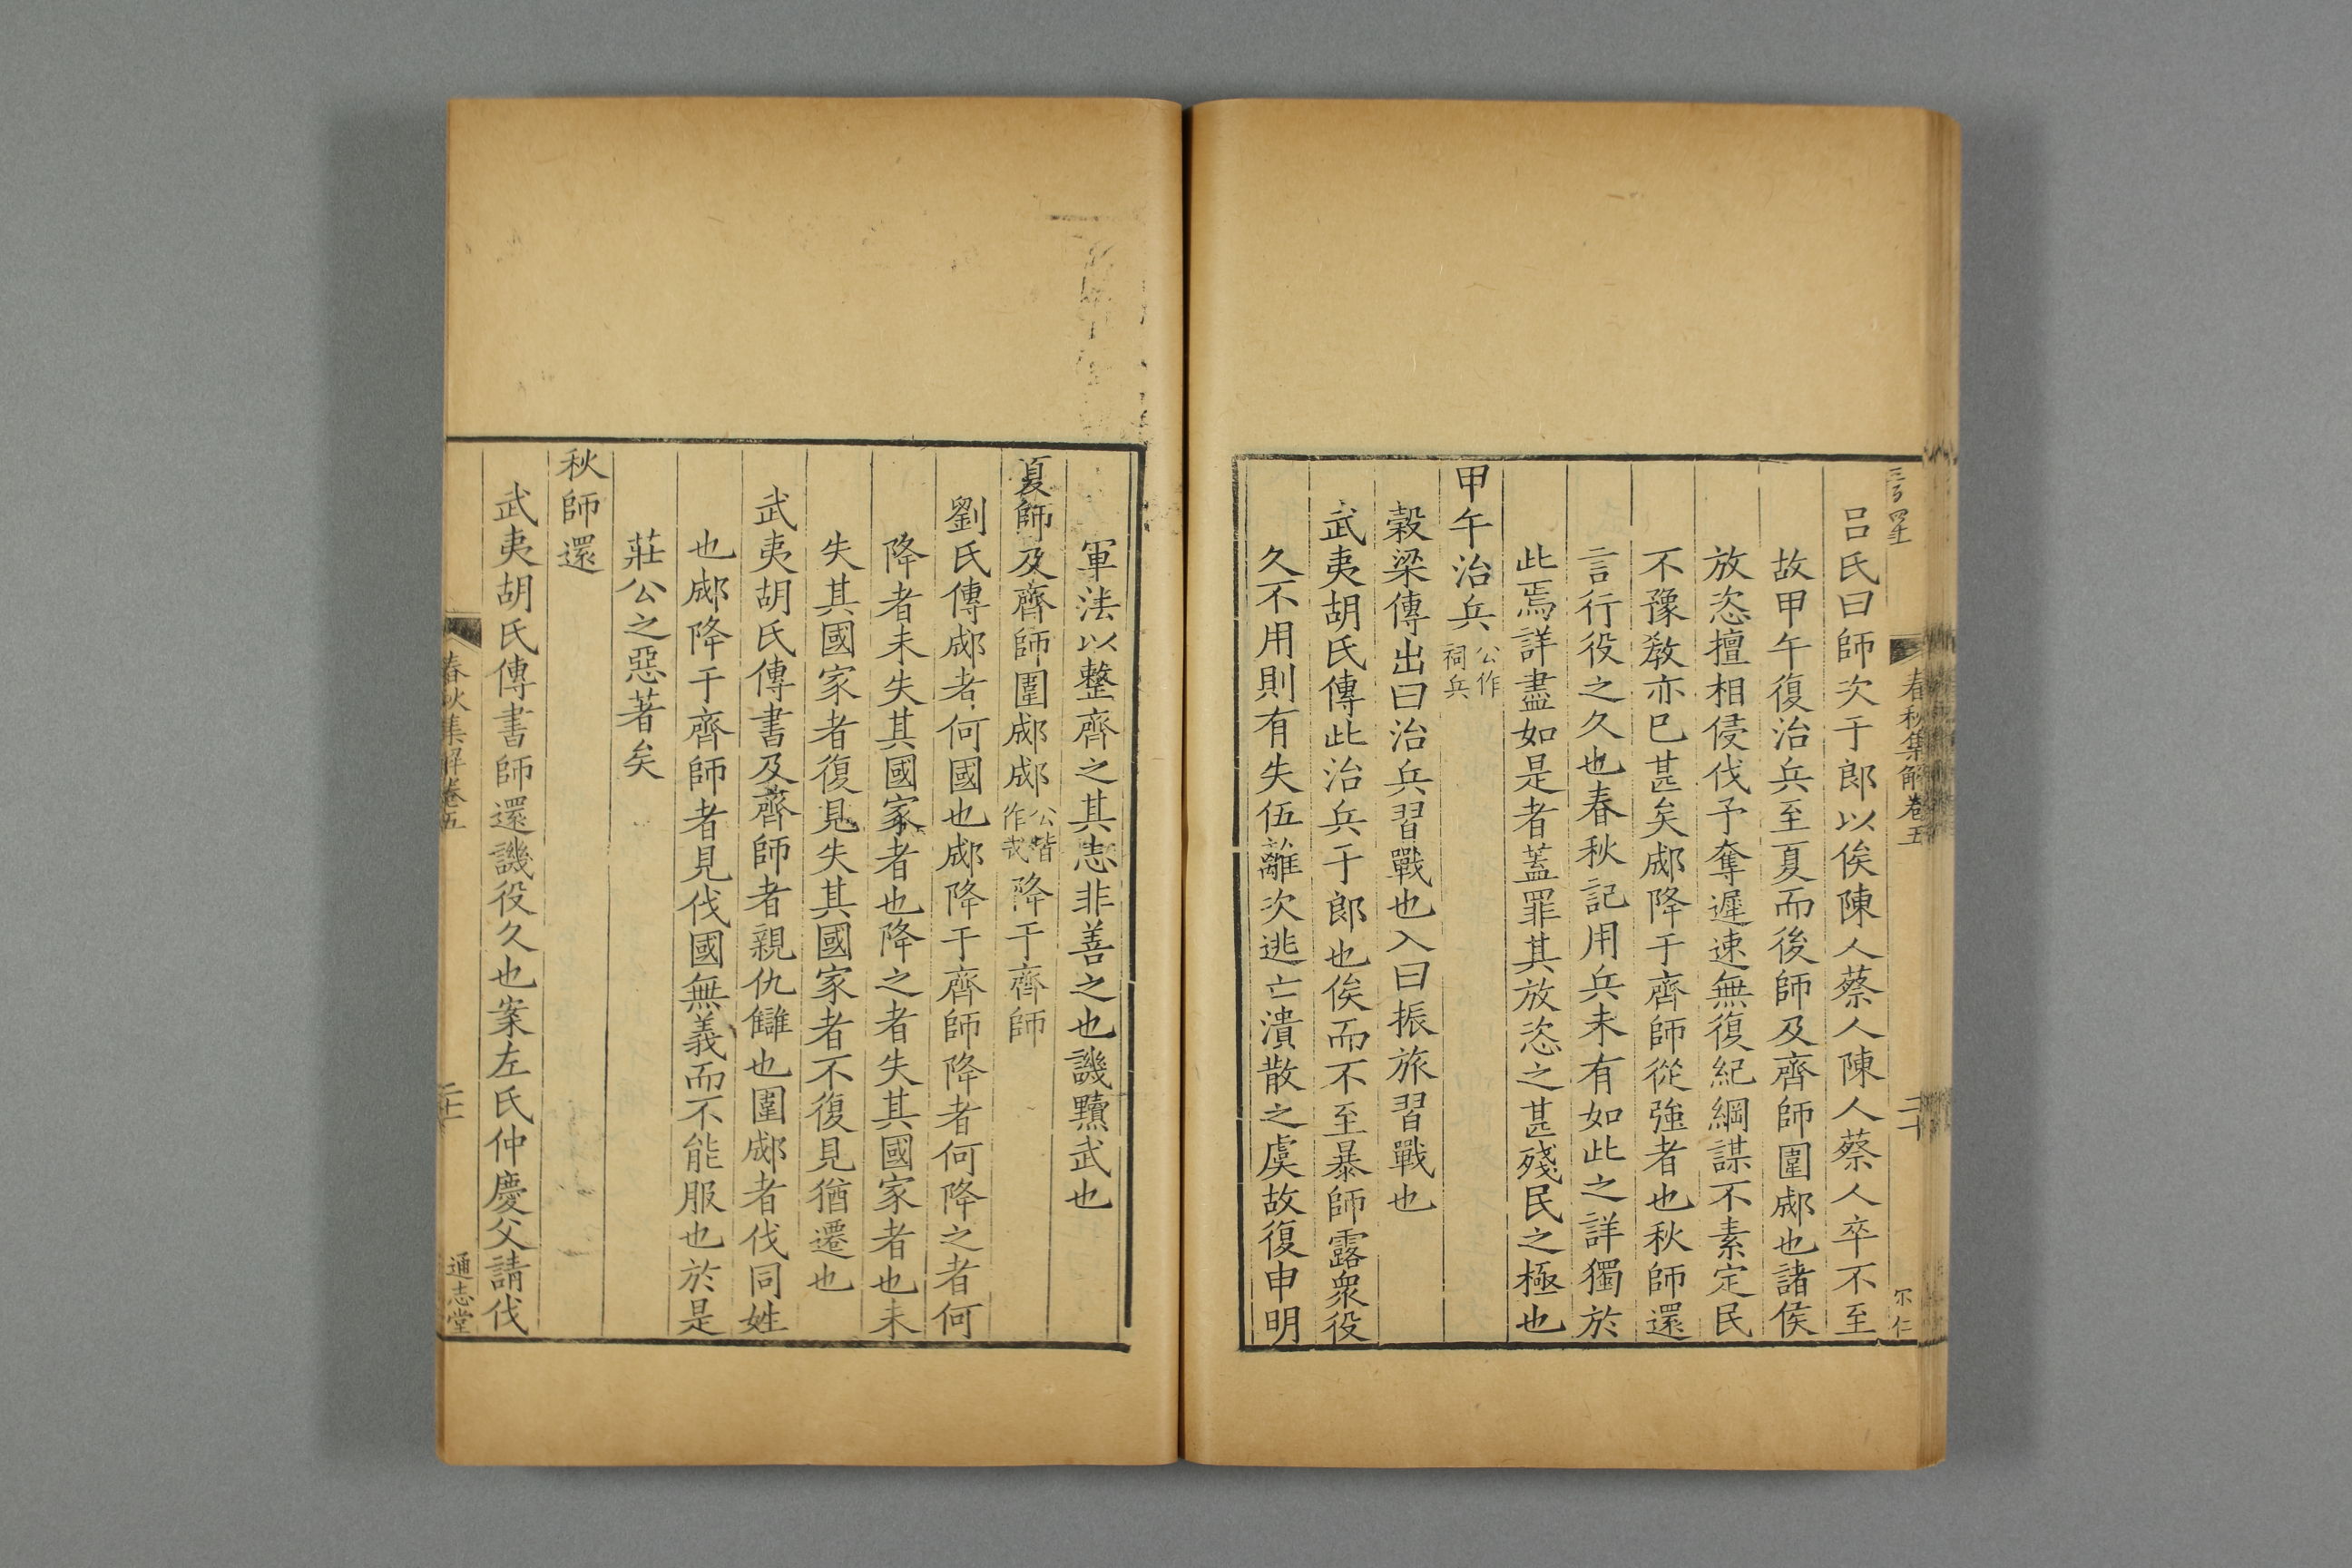 呂氏曰師次于郎以俟陳人蔡人陳人蔡人卒不至
故甲午復治兵至夏而後師及齊師圍郕也諸侯
放恣擅相侵伐予奪遲速無復紀綱謀不素定民
不豫敎亦巳甚矣郕降于齊師從強者也秋師還
言行役之久也春秋記用兵未有如此之詳獨於
此焉詳盡如是者蓋罪其放恣之甚殘民之極也
甲午治兵公作祠兵
榖梁傳出曰治兵習戰也入曰振旅習戰也
武夷胡氏傳此治兵于郎也俟而不至暴師露衆役
久不用則有失伍離次逃亡潰散之虞故復申明
春秋集解卷五
二十
軍法以整齊之其志非善之也譏黷武也
夏師及齊師圍郕郕公皆作成降于齊師
劉氏傳郕者何國也郕降于齊師降者何降之者何
降者未失其國家者也降之者失其國家者也未
失其國家者復見失其國家者不復見猶遷也
武夷胡氏傳書及齊師者親仇讎也圍郕者伐同姓
也郕降于齊師者見伐國無義而不能服也於是
莊公之惡著矣
秋師還
武夷胡氏傳書師還譏役久也案左氏仲慶父請伐
春秋集解卷五
通志堂